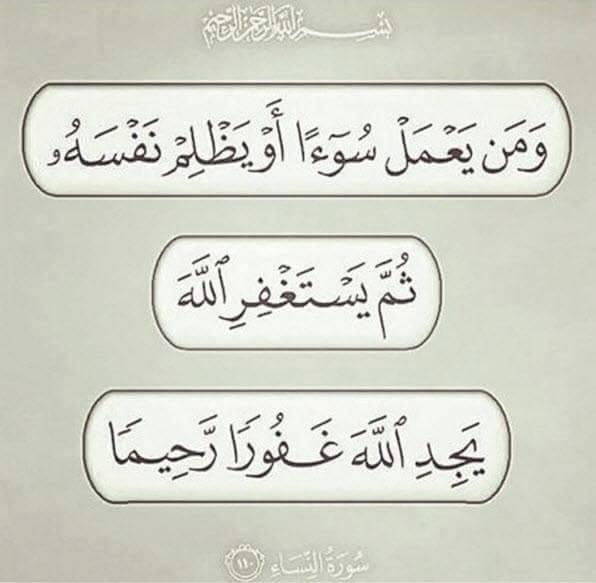 بِسْمِ اللَّهِ الرَّحْمَٰنِ الرَّحِيمِ
وَمَن يَعْمَلْ سُوٓءًا أَوْ يَظْلِمْ نَفْسَهُۥ
ثُمَّ يَسْتَغْفِرِ ٱللَّهَ
يَجِدِ ٱللَّهَ غَفُورًا رَّحِيمًا
سُورَةُ النِّسَاءِ ١١٠